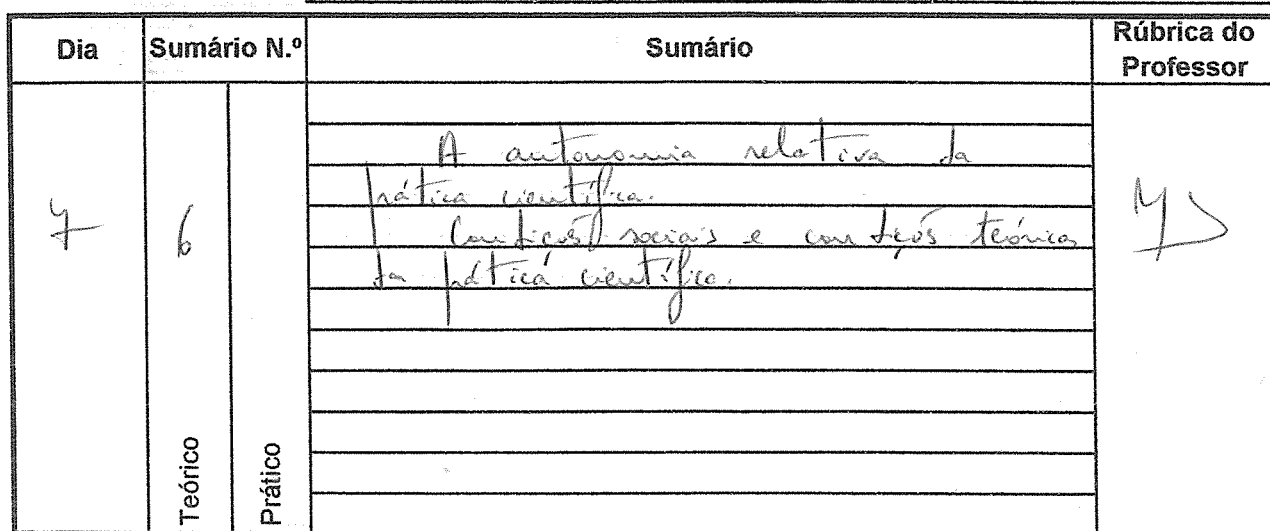 Dia Sumário N.º Sumário Rúbrica do Professor
7 6
A autonomia relativa da
prática científica.
Condições sociais e condições teóricas
da prática científica.
Teórico Prático